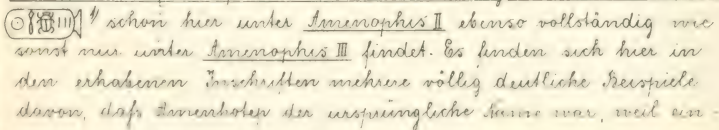 ⁴⁾ schon hier unter Amenophis II ebenso vollständig wie
sonst nur unter Amenophis III findet. Es finden sich hier in
den erhabenen Inschriften mehrere völlig deutliche Beispiele
davon, daſs Amenhotep der ursprüngliche Name war, weil ein-